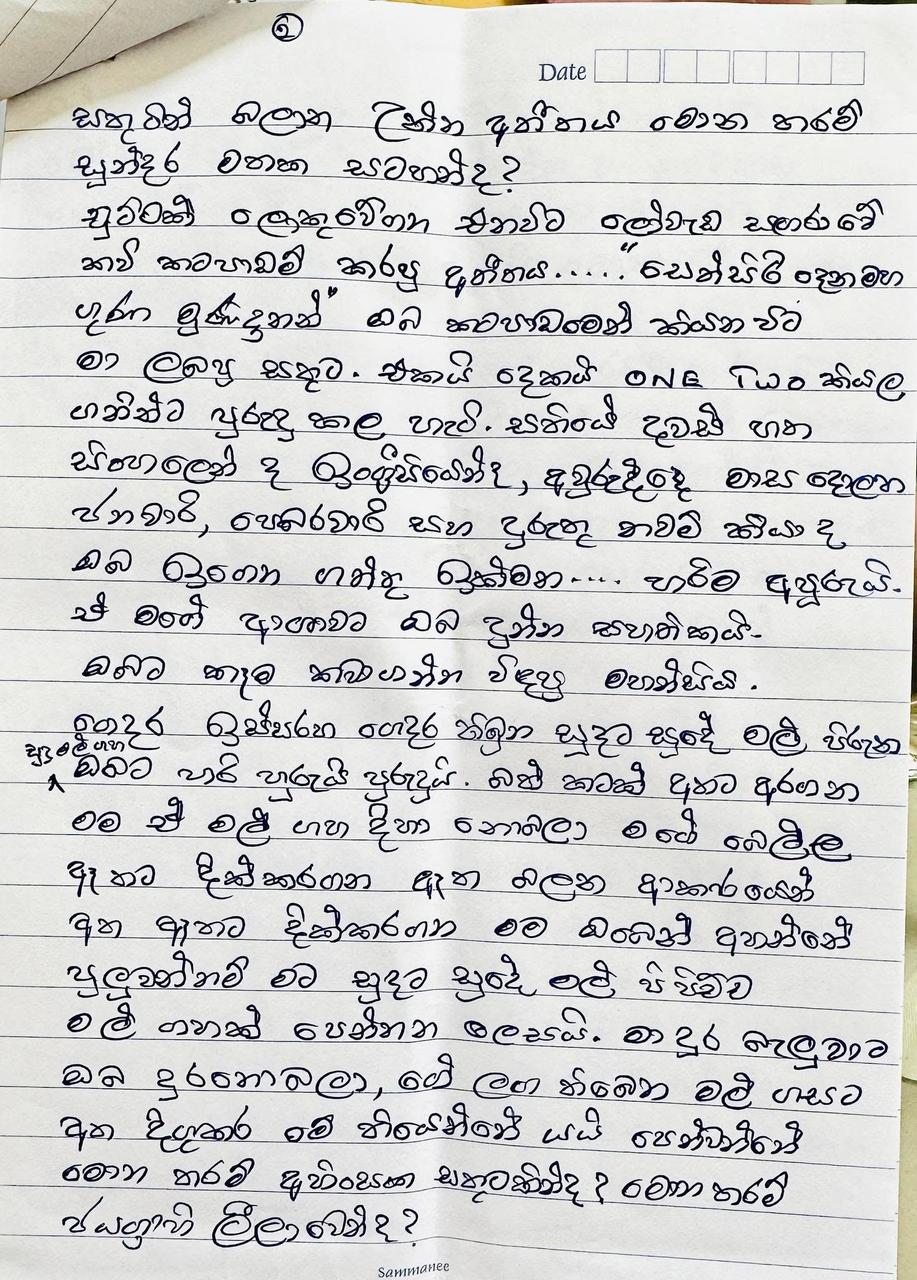 ②
Date
සතුටින් බලාන උන්න අතීතය මොන තරම්
සුන්දර මතක සටහන්ද?
චුට්ටක් ලොකුවේගන එනවිට ලෝවැඩ සඟරාවේ
කවි කටපාඩම් කරපු අතීතය..... "සෙත්සිරි දෙන මහ
ගුණ මුණිඳුනන්" ඔබ කටපාඩමෙන් කියන විට
මා ලබපු සතුට. එකයි දෙකයි ONE Two කියල
ගනින්ට පුරුදු කල හැටි. සතියේ දවස් හත
සිංහලෙන් ද ඉංග්‍රීසියෙන්ද, අවුරුද්දේ මාස දොලහ
ජනවාරි, පෙබරවාරි සහ දුරුතු නවම් කියා ද
ඔබ ඉගෙන ගත්තු ඉක්මන.... හරිම අපූරුයි.
ඒ මගේ ආශාවට ඔබ දුන්න සහතිකයි.
ඔබට කෑම කවාගන්න විඳපු මහන්සියි.
ගෙදර ඉස්සරහ ගෙදර තිබුන සුදට සුදේ මල් පිරුන
සුදු මල් ගහ
ඔබට හරි හුරුයි පුරුදුයි. බත් කටක් අතට අරගන
මම ඒ මල් ගහ දිහා නොබලා මගේ බෙල්ල
ඈතට දික්කරගන ඈත බලන ආකාරයෙන්
අත ඈතට දික්කරගන මම ඔබෙන් අහන්නේ
පුලුවන්නම් මට සුදට සුදේ මල් පිපිච්ච
මල් ගහක් පෙන්නන ලෙසයි. මා දුර බැලුවාට
ඔබ දුරනොබලා, ගේ ලග තිබෙන මල් ගසට
අත දිගුකර මේ තියෙන්නේ යයි පෙන්වන්නේ
මොන තරම් අහිංසක සතුටකින්ද? මොන තරම්
ජයග්‍රාහී ලීලාවෙන්ද?
Sammanee